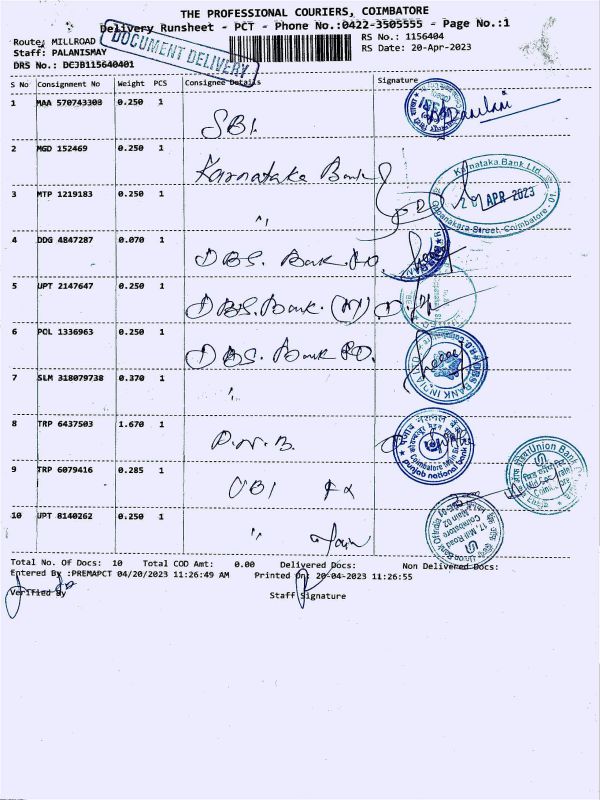 THE PROFESSIONAL COURIERS, COIMBATORE
Delivery Runsheet - PCT - Phone No.:0422-3505555 - Page No.:1
DOCUMENT DELIVERY
Route: MILLROAD
RS No.: 1156404
Staff: PALANISMAY
RS Date: 20-Apr-2023
DRS No.: DCJB115640401
S No Consignment No Weight PCS Consignee Details Signature
1 MAA 570743303 0.250 1 SBI.
2 MGD 152469 0.250 1 Karnataka Bank
Karnataka Bank Ltd.
APR 2023
Street, Coimbatore - 01.
3 MTP 1219183 0.250 1 "
4 DDG 4847287 0.070 1 DBS. Bank. RO.
5 UPT 2147647 0.250 1 DBS. Bank. (M)
6 POL 1336963 0.250 1 DBS. Bank RO.
DBS BANK INDIA
7 SLM 318079738 0.370 1 "
8 TRP 6437503 1.670 1 P.N.B.
punjab national bank
9 TRP 6079416 0.285 1 UBI
Union Bank
10 UPT 8140262 0.250 1 " Main
17, Mill Road
Coimbatore
Main 02
Total No. Of Docs: 10 Total COD Amt: 0.00 Delivered Docs: Non Delivered Docs:
Entered By :PREMAPCT 04/20/2023 11:26:49 AM Printed On: 20-04-2023 11:26:55
Verified By
Staff Signature